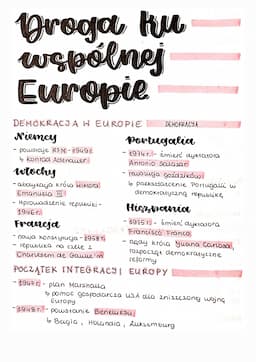 Droga ku
wspólnej
Europie
DEMOKRACJA W EUROPIE DEMOKRACJA
Niemcy
- powstaje RFN - 1949 r.
↳ Konrad Adenauer
Włochy
- abdykacja króla Wiktora
Emanuela III
- wprowadzenie republiki -
1946 r.
Francja
- nowa konstytucja - 1958 r.
- republika na czele z
Charlesem de Gaulle'm
Portugalia
- 1974 r. - śmierć dyktatora
Antonio Salazar
- rewolucja goździków
↳ przekształcenie Portugalii w
demokratyczną republikę
Hiszpania
- 1975 r. - śmierć dyktatora
Francisco Franco
- rządy króla Juana Carlosa I,
rozpoczął demokratyczne
reformy
POCZĄTEK INTEGRACJI EUROPY
- 1947 r. - plan Marshalla
↳ pomoc gospodarcza USA dla zniszczonej wojną
Europy
- 1948 r. - powstanie Beneluksu
↳ Belgia, Holandia, Luksemburg